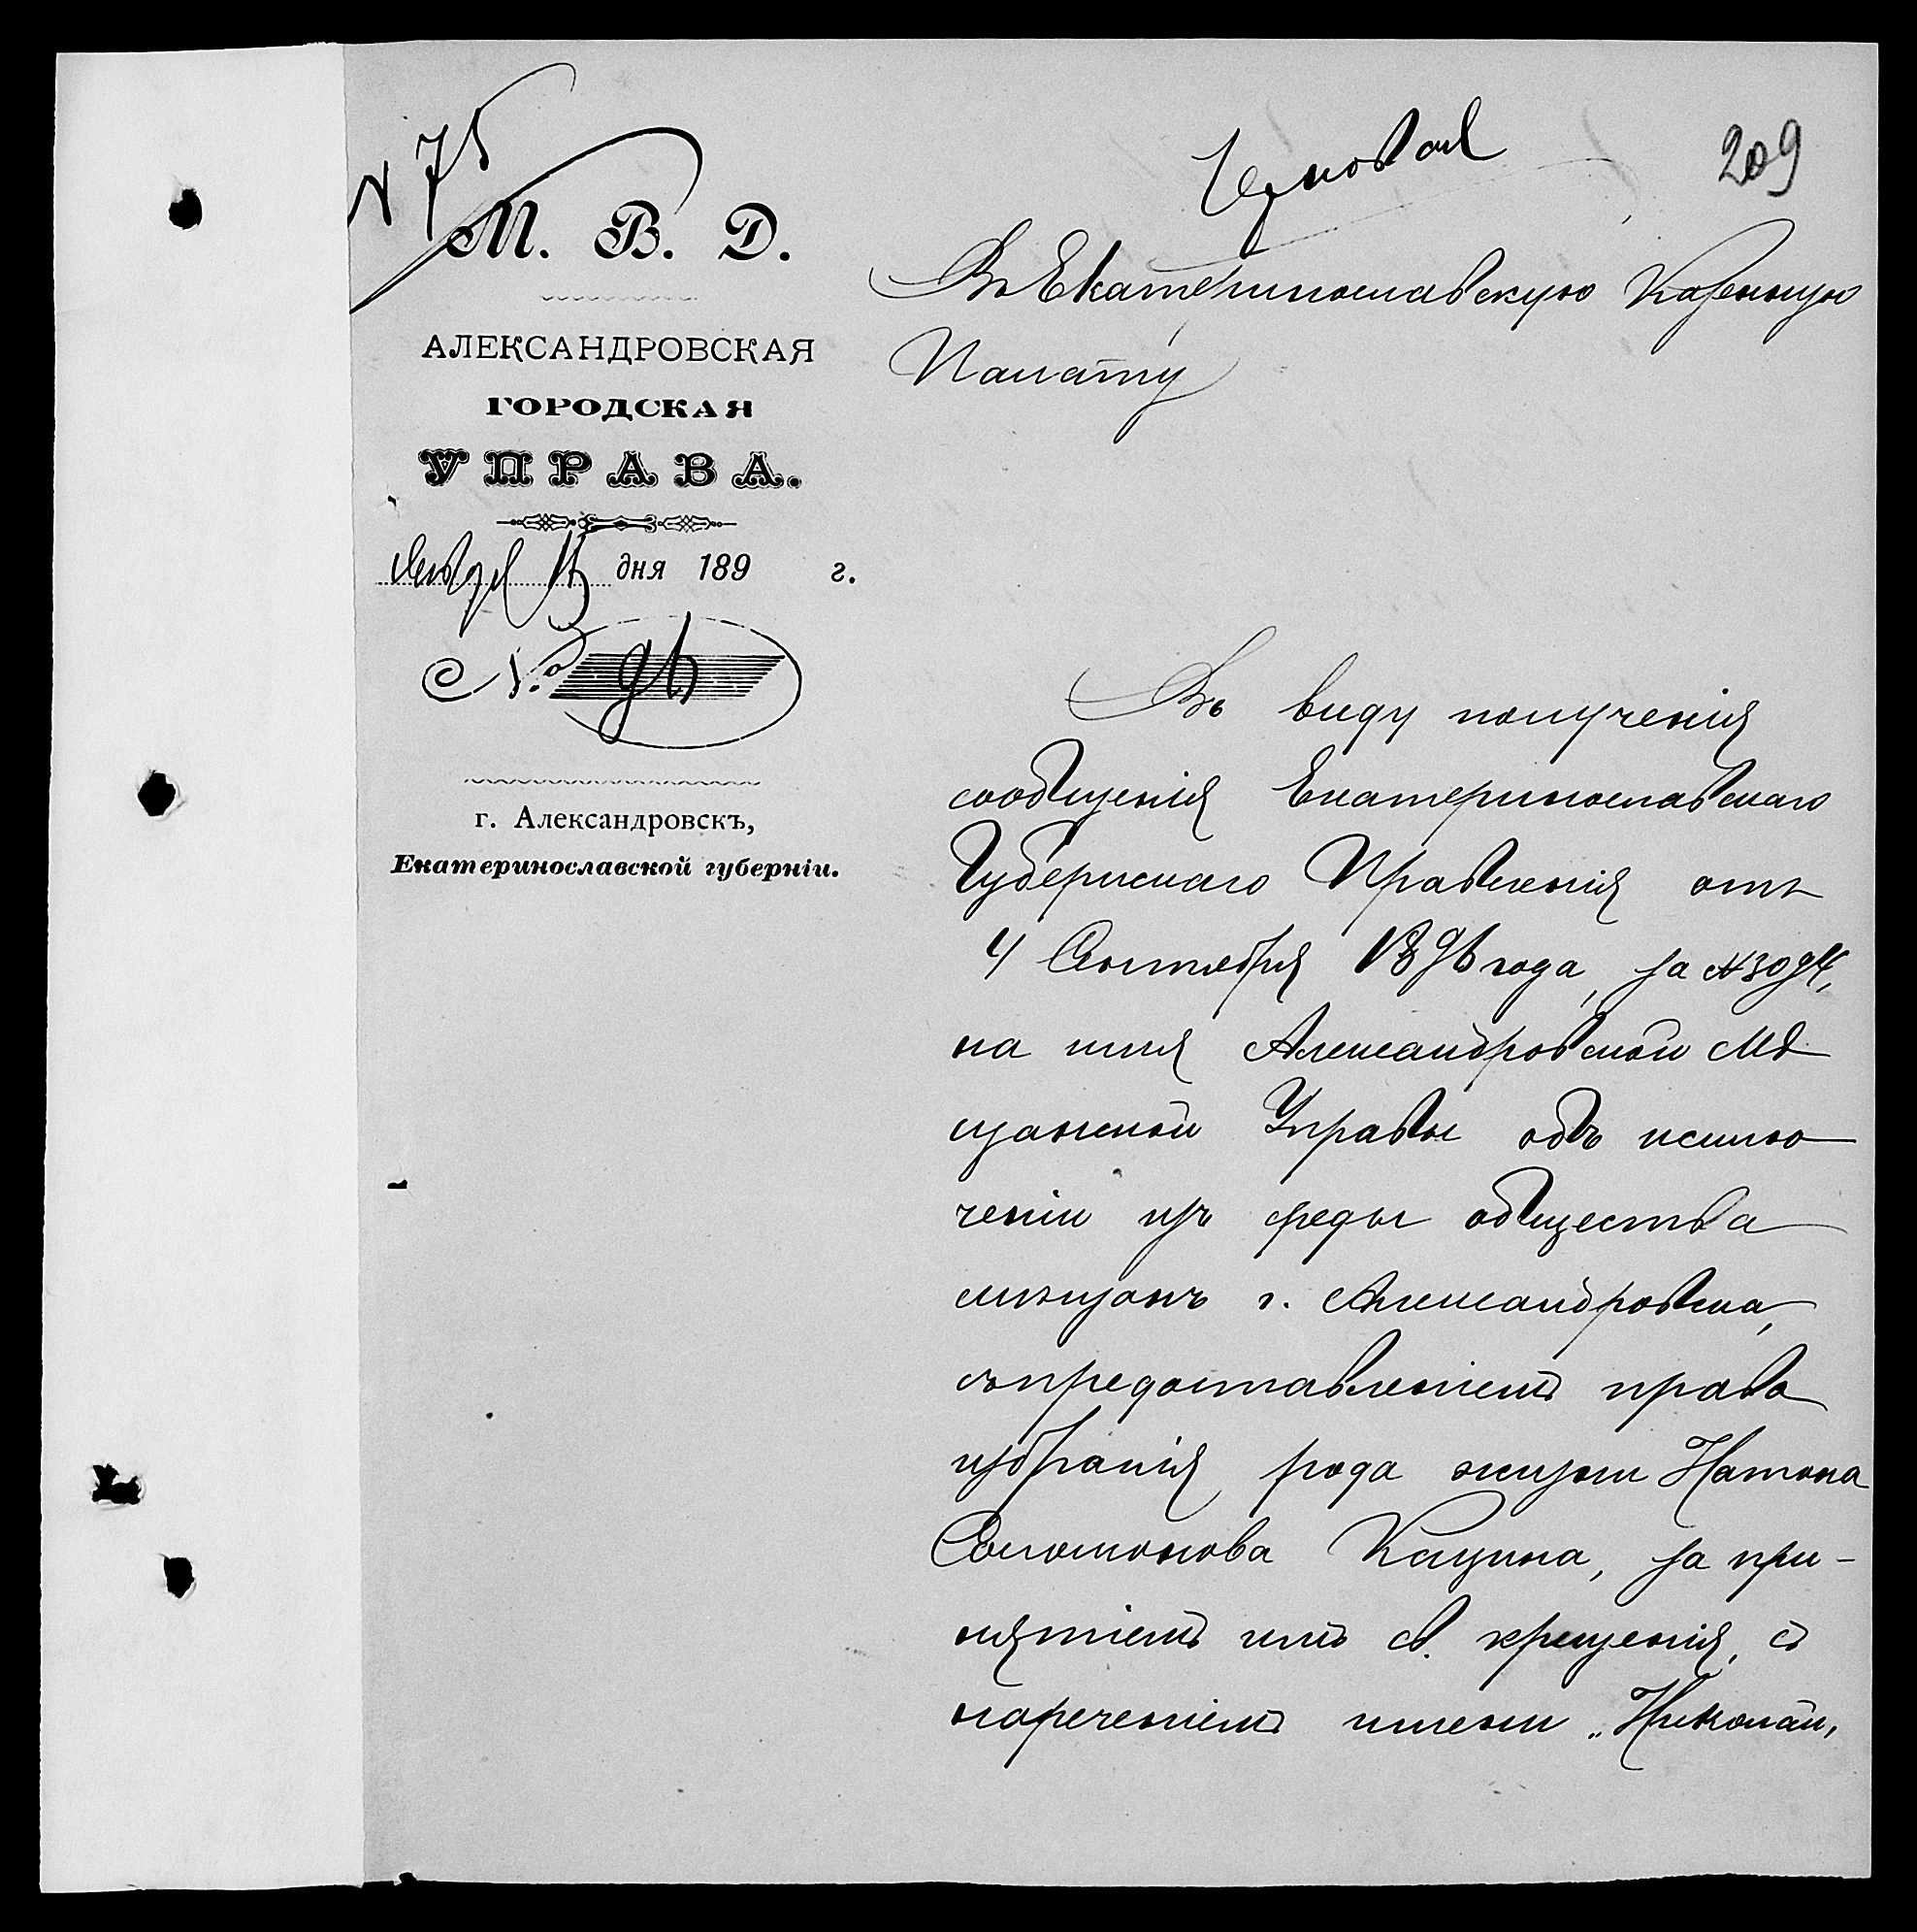 № 75
М. В. Д.
АЛЕКСАНДРОВСКАЯ
ГОРОДСКАЯ
УПРАВА.
Января дня 189 г.
№
г. Александровскъ,
Екатеринославской губерніи.
Черновая
209
Въ Екатеринославскую Казенную
Палату
Въ виду полученія
сообщенія Екатеринославскаго
Губернскаго Правленія отъ
4 Сентября 1896 года, за №3094,
на имя Александровской Мѣ
щанской Управы объ исклю
ченіи изъ среды общества
мѣщанъ г. Александровска,
съ предоставленіемъ права
избранія рода жизни Натана
Соломонова Кацина, за при-
нятіемъ имъ св. крещенія, съ
нареченіемъ имени „Николай„